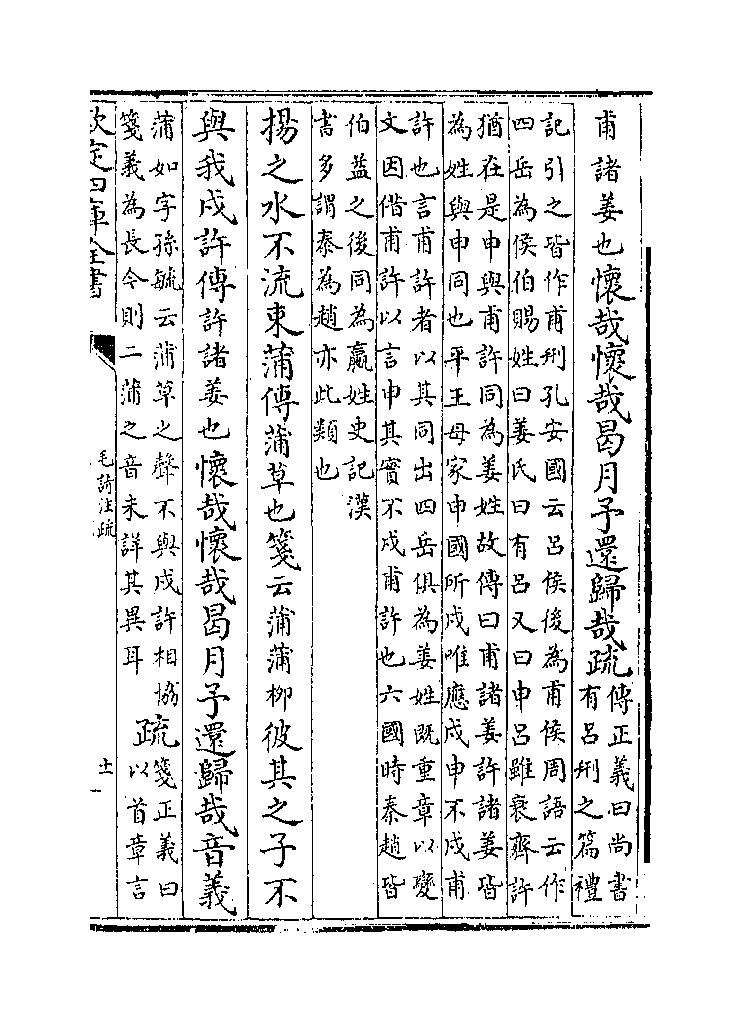 甫諸姜也懷哉懷哉曷月予還歸哉疏
傳正義曰尚書
有呂刑之篇禮
記引之皆作甫刑孔安國云呂侯後為甫侯周語云作
四岳為侯伯賜姓曰姜氏曰有呂又曰申呂雖衰齊許
猶在是申與甫許同為姜姓故傳曰甫諸姜許諸姜皆
為姓與申同也平王母家申國所戍唯應戍申不戍甫
許也言甫許者以其同出四岳俱為姜姓既重章以變
文因借甫許以言申其實不戍甫許也六國時秦趙皆
伯益之後同為嬴姓史記漢
書多謂秦為趙亦此類也
揚之水不流束蒲傳蒲草也箋云蒲蒲柳彼其之子不
與我戍許傳許諸姜也懷哉懷哉曷月予還歸哉音義
蒲如字孫毓云蒲草之聲不與戍許相協
箋義為長今則二蒲之音未詳其異耳
疏
箋正義曰
以首章言
欽定四庫全書
毛詩注疏
十一